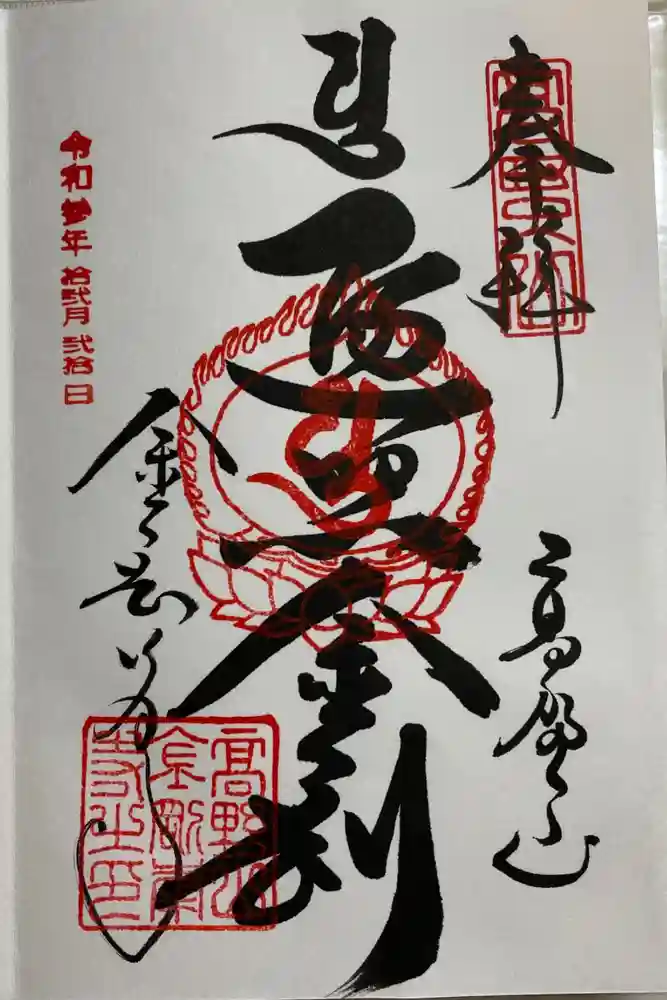 奉拝
高野山
遍照金剛
金剛峯寺
令和参年 拾弐月 弐拾日
高野山
金剛峯
寺之印